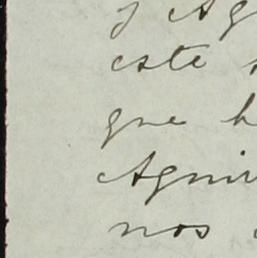 y Ag
este
que h
Agui
nos